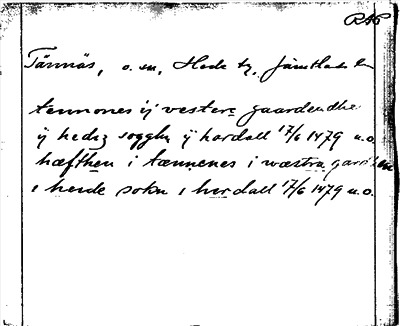 RAP
Tännäs, o. sn, Hede tg, Jämtlands län
tennones ij vestere gaardendhe
ij hedez sogghn ij hardall 17/6 1479 u.o.
hæfthen i tænnenes i wæstra gard
i hede sokn i herdall 17/6 1479 u.o.